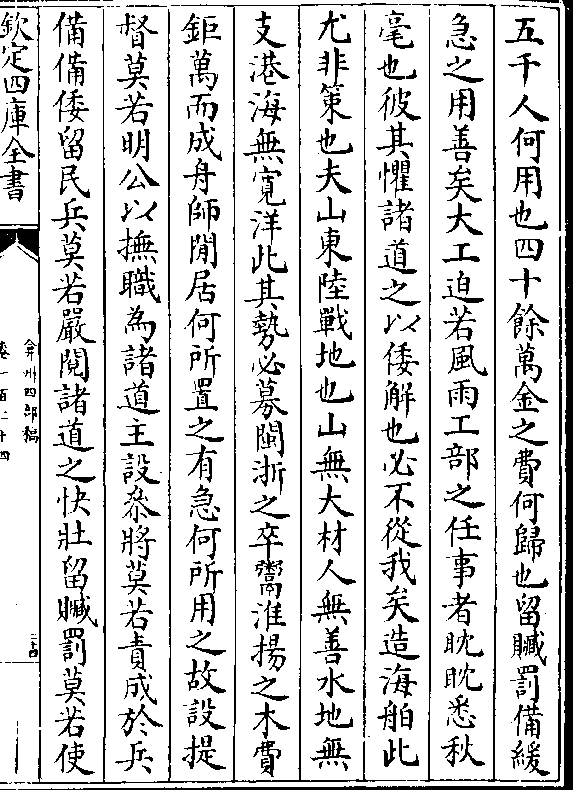 五千人何用也四十餘萬金之費何歸也留贓罰備緩
急之用善矣大工迫若風雨工部之任事者眈眈悉秋
毫也彼其懼諸道之以倭解也必不從我矣造海舶此
尤非策也夫山東陸戰地也山無大材人無善水地無
支港海無寛洋此其勢必募閩浙之卒鬻淮揚之木費
鉅萬而成舟師閒居何所置之有急何所用之故設提
督莫若明公以撫職為諸道主設叅將莫若責成於兵
備備倭留民兵莫若嚴閱諸道之快壯留贓罰莫若使
欽定四庫全書
弇州四部稿
卷一百二十四